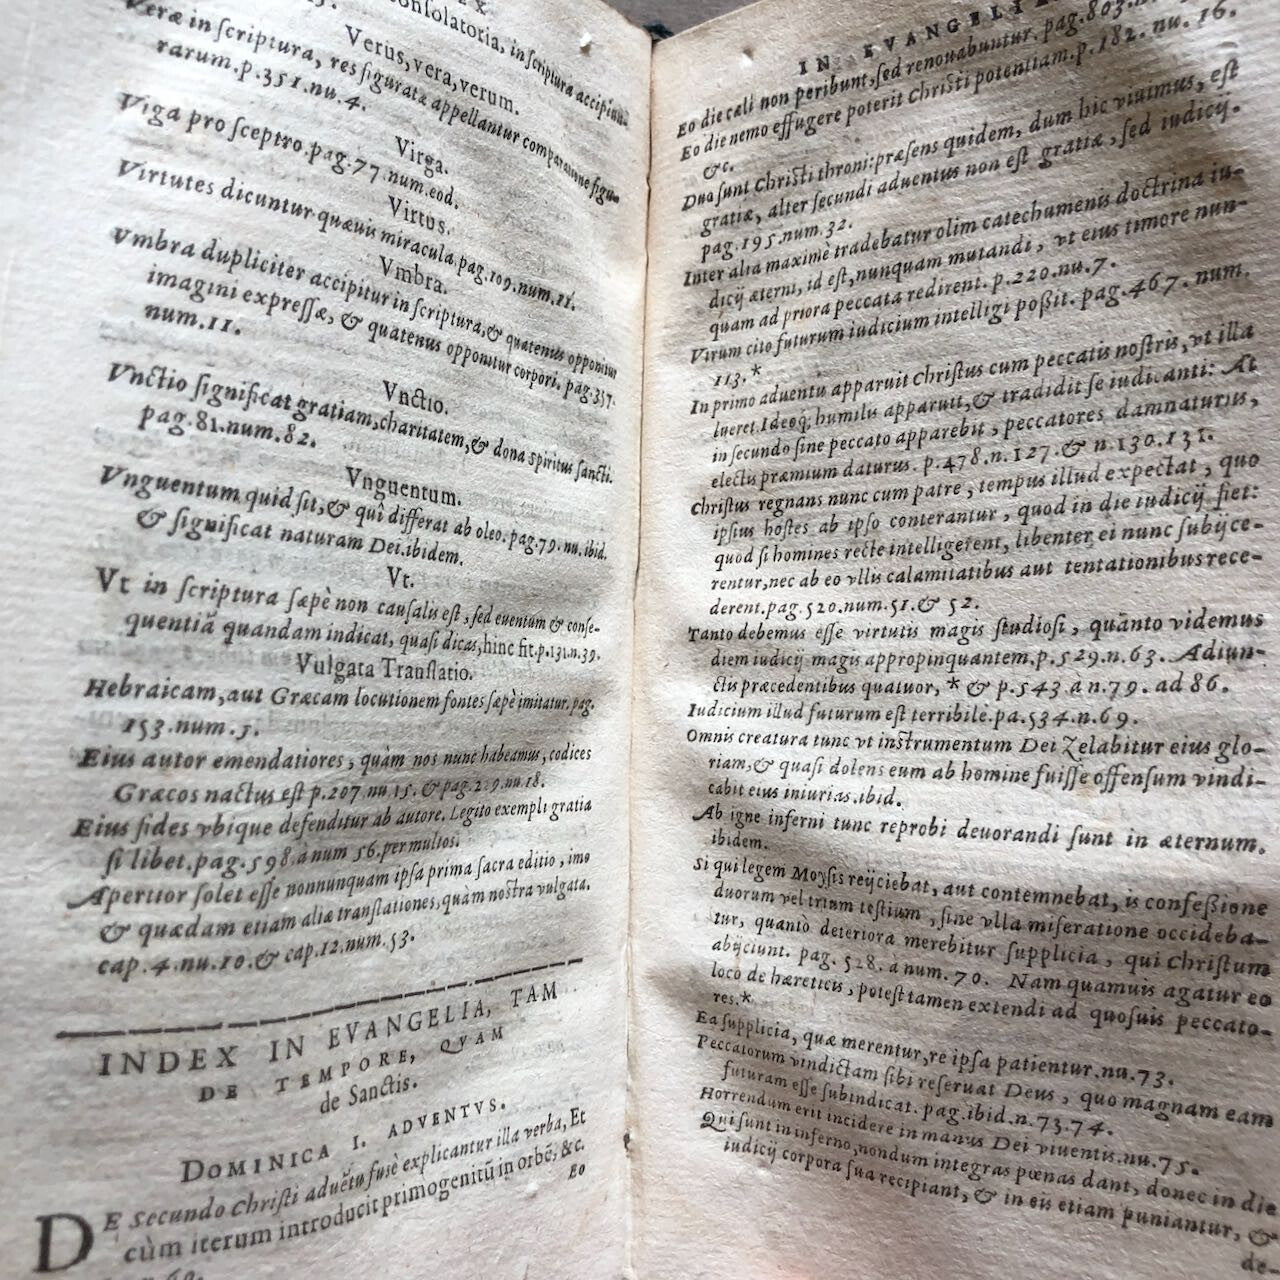 consolatoria, in scriptura accipiun-
Verus, vera, verum.
Veræ in scriptura, res figuratæ appellantur comparatione figu-
rarum.p.351.nu.4.
Virga.
Viga pro sceptro.pag.77.num.eod.
Virtus.
Virtutes dicuntur quæuis miracula.pag.109.num.11.
Vmbra.
Vmbra dupliciter accipitur in scriptura,& quatenus opponitur
imagini expressæ, & quatenus opponitur corpori. pag.357.
num.11.
Vnctio.
Vnctio significat gratiam,charitatem,& dona spiritus sancti.
pag.81.num.82.
Vnguentum.
Vnguentum quid sit,& quî differat ab oleo. pag.79. nu. ibid.
& significat naturam Dei.ibidem.
Vt.
Vt in scriptura sæpè non causalis est, sed euentum & conse-
quentiã quandam indicat, quasi dicas,hinc fit.p.131.n.39.
Vulgata Translatio.
Hebraicam, aut Græcam locutionem fontes sæpè imitatur. pag.
153.num.5.
Eius autor emendatiores, quàm nos nunc habeamus, codices
Græcos nactus est p.207.nu.15. & pag.229.nu.18.
Eius fides vbique defenditur ab autore. Legito exempli gratia
si libet.pag.598.à num 56.per multos.
Apertior solet esse nonnunquam ipsa prima sacra editio, imo
& quædam etiam aliæ translationes, quàm nostra vulgata.
cap.4.nu.10.& cap.12.num.53.
INDEX IN EVANGELIA, TAM
DE TEMPORE, QVAM
de Sanctis.
DOMINICA I. ADVENTVS.
DE Secundo Christi aduẽtu fusè explicantur illa verba, Et
cùm iterum introducit primogenitũ in orbẽ, &c.
Eo
IN EVANGELIA
Eo die cæli non peribunt, sed renouabuntur. pag.803.
Eo die nemo effugere poterit Christi potentiam.p.182. nu. 16.
&c.
Duo sunt Christi throni: præsens quidem, dum hic viuimus, est
gratiæ, alter secundi aduentus non est gratiæ, sed iudicij.
pag.195.num.32.
Inter alia maximè tradebatur olim catechumenis doctrina iu-
dicij æterni, id est,nunquam mutandi, vt eius timore nun-
quam ad priora peccata redirent. p.220.nu.7.
Virum cito futurum iudicium intelligi poßit. pag.467. num.
113.*
In primo aduentu apparuit Christus cum peccatis nostris, vt illa
lueret. Ideoq; humilis apparuit,& tradidit se iudicanti: At
in secundo sine peccato apparebit, peccatores damnaturus,
electis præmium daturus. p.478.n.127.& n.130.131.
Christus regnans nunc cum patre, tempus illud expectat, quo
ipsius hostes ab ipso conterantur, quod in die iudicij fiet:
quod si homines rectè intelligerent, libenter ei nunc subijce-
rentur,nec ab eo vllis calamitatibus aut tentationibus rece-
derent.pag.520.num.51.& 52.
Tanto debemus esse virtutis magis studiosi, quãnto videmus
diem iudicij magis appropinquantem.p.529.n.63. Adiun-
ctis præcedentibus quatuor,* & p.543.à n.79. ad 86.
Iudicium illud futurum est terribile.pa.534.n.69.
Omnis creatura tunc vt instrumentum Dei Zelabitur eius glo-
riam,& quasi dolens eum ab homine fuisse offensum vindi-
cabit eius iniurias.ibid.
Ab igne inferni tunc reprobi deuorandi sunt in æternum.
ibidem.
Si qui legem Moysis reijciebat, aut contemnebat, is confeßione
duorum vel trium testium, sine vlla miseratione occideba-
tur, quantò deteriora merebitur supplicia, qui Christum
abijciunt. pag. 528. à num. 70. Nam quamuis agatur eo
loco de hæreticis, potest tamen extendi ad quosuis peccato-
res.*
Ea supplicia, quæ merentur,re ipsa patientur.nu.73.
Peccatorum vindictam sibi reseruat Deus, quo magnam eam
futuram esse subindicat. pag.ibid.n.73.74.
Horrendum erit incidere in manus Dei viuentis.nu.75.
Qui sunt in inferno,nondum integras pœnas dant, donec in die
iudicij corpora sua recipiant, & in eis etiam puniantur, &
de-